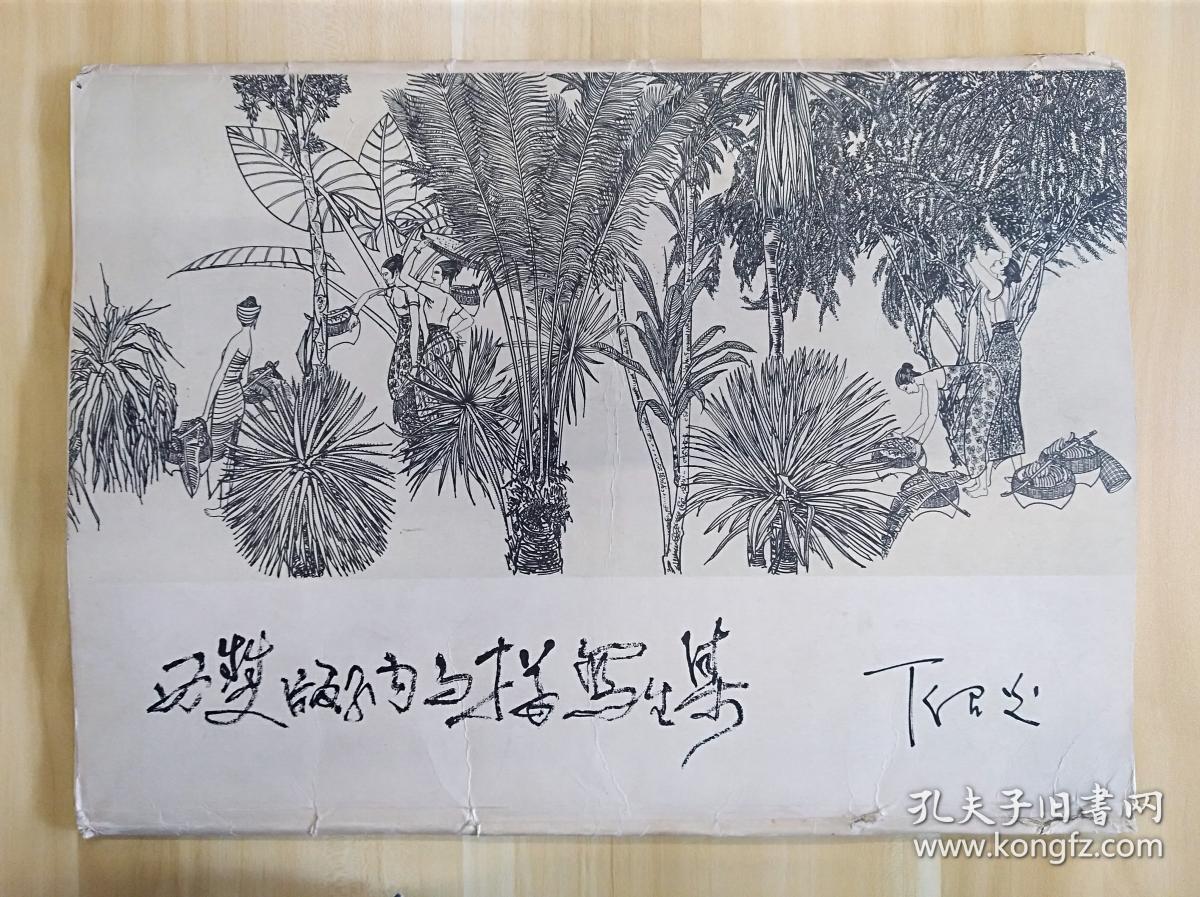 西雙版纳白描寫生集
丁绍光
孔夫子旧書网
www.kongfz.com